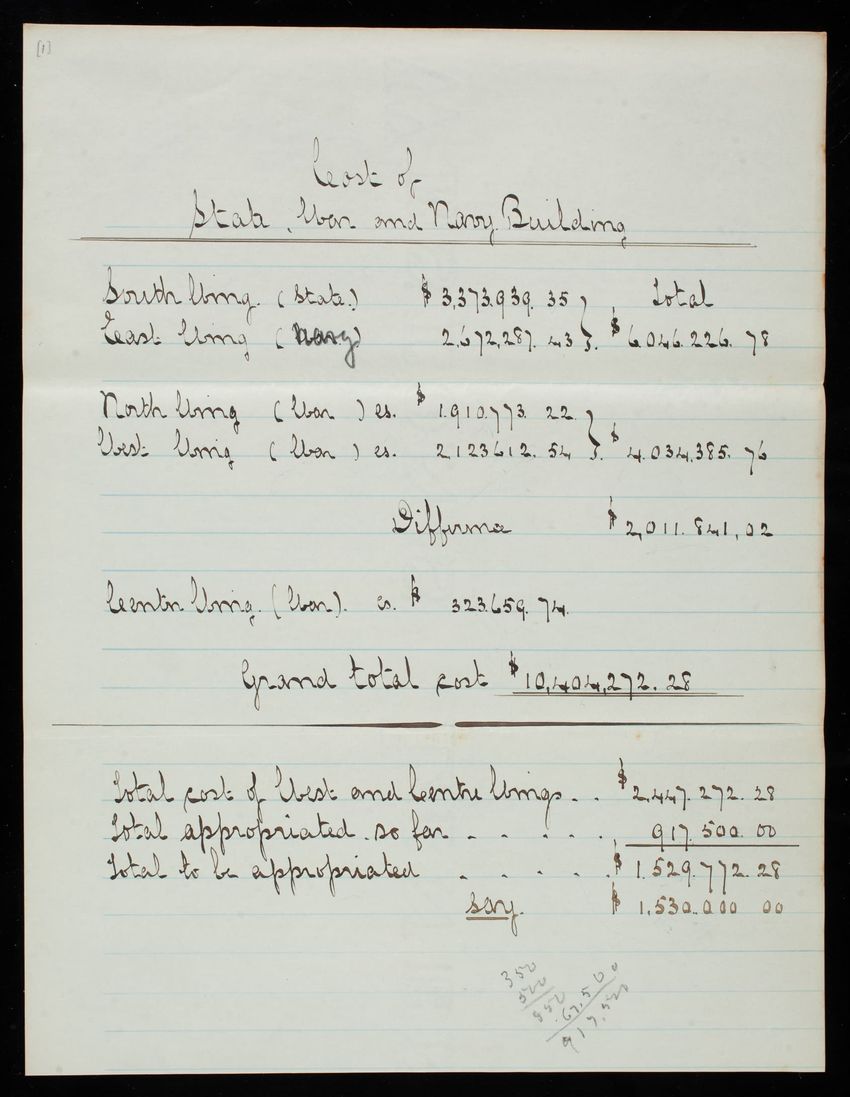 [1]
Cost of
State, War and Navy Building
South Wing. (State.) $3,373,939.35 Total
East Wing (Navy) 2,672,287.43 $6,046,226.78
North Wing (War) es. $1,910,773.22
West Wing (War) es. 2,123,612.54 $4,034,385.76
Difference $2,011,841,02
Centre Wing. (War). es. $323,659.74.
Grand total cost $10,404,272.28
Total cost of West and Centre Wings . . $2,447,272.28
Total appropriated so far - - - - - 917,500.00
Total to be appropriated - - - - $1,529,772.28
say. $1,530,000 00
350
500
850
67,500
917,500